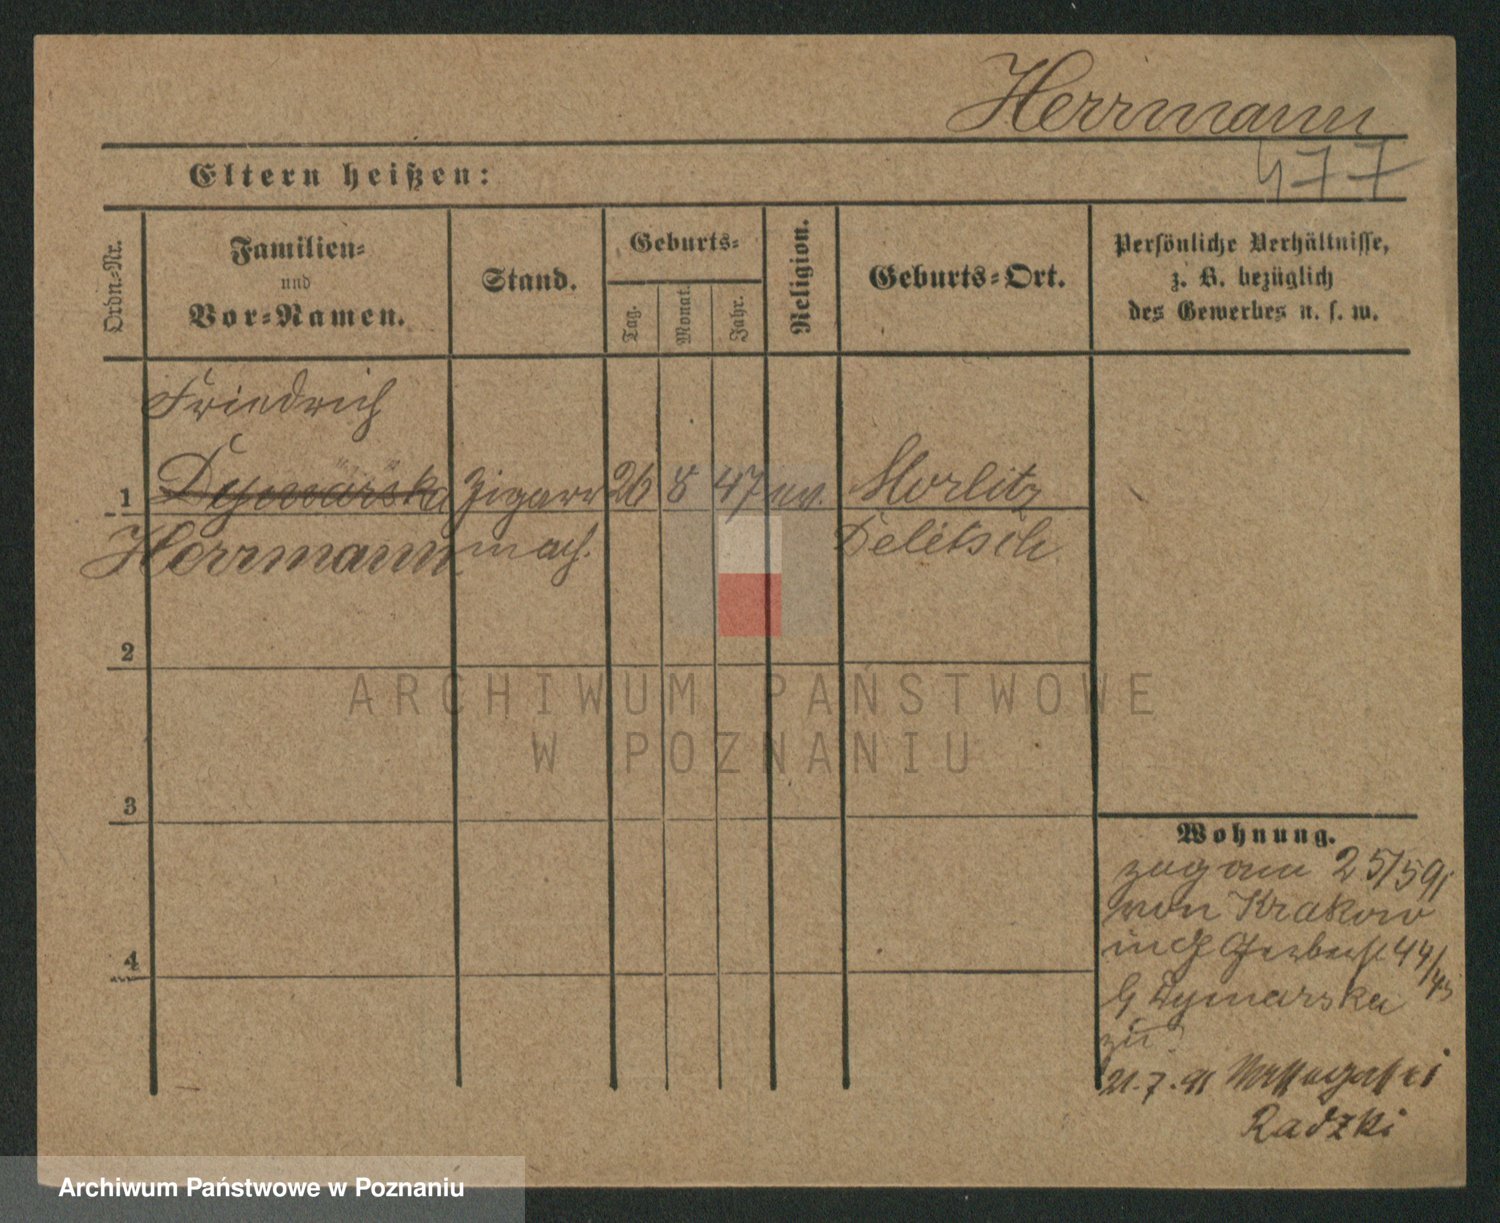 Herrmann
477
Eltern heißen:
Ordn.-Nr.
Familien-
und
Vor-Namen.
Stand.
Geburts-
Tag.
Monat.
Jahr.
Religion.
Geburts-Ort.
Persönliche Verhältnisse,
z. B. bezüglich
des Gewerbes u. s. w.
Friedrich
1 Dymarska Zigarr 26 8 47 ev. Morlitz
Herrmann mach. Delitsch
2
ARCHIWUM PAŃSTWOWE
W POZNANIU
3
Wohnung.
zugam 25/5 91
von Krakow
Gerberst. 44/45
b Dymarska
zu
4
21.7.91
Radzki
Archiwum Państwowe w Poznaniu